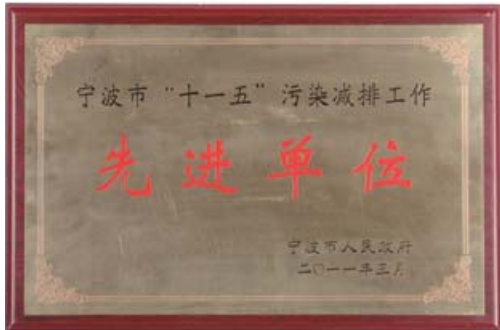 宁波市“十一五”污染减排工作
先进单位
宁波市人民政府
二〇一一年三月